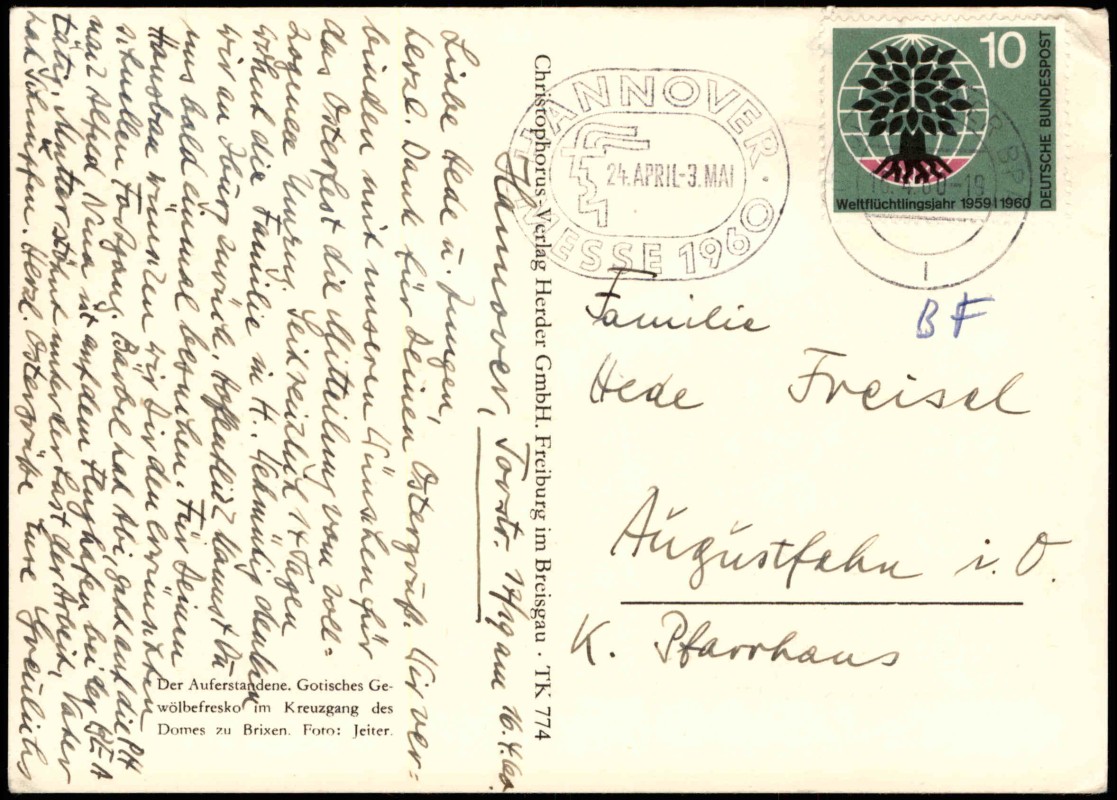 Hannover, Torstr. 14/19 am 16.4.60
Liebe Hede u. Jungen,
herzl. Dank für Deinen Ostergruß. Wir ver-
binden mit unseren Wünschen für
das Osterfest die Mitteilung vom voll-
zogenen Umzug. Seit reichlich 14 Tagen
wohnt die Familie in H.. Wehmütig denken
wir an Iburg zurück. Hoffentlich kannst Du
uns bald einmal besuchen. Für Deinen
Hausbau wünschen wir Dir den erwünschten
schnellen Fortgang. Bärbel hat Abi, geht auf die PH
nach Alfeld, Nina ist auf dem Flughafen bei der BEA
tätig, Mutter stöhnt unter der Last der Arbeit, Vater
hat Schnupfen. Herzl. Ostergrüße Eure Greulichs
Der Auferstandene. Gotisches Ge-
wölbefresko im Kreuzgang des
Domes zu Brixen. Foto: Jeiter.
Christophorus-Verlag Herder GmbH. Freiburg im Breisgau · TK 774
HANNOVER
24. APRIL-3. MAI
MESSE 1960
10
DEUTSCHE BUNDESPOST
Weltflüchtlingsjahr 1959|1960
BF
Familie
Hede Freisel
Augustfehn i. O
K. Pfarrhaus